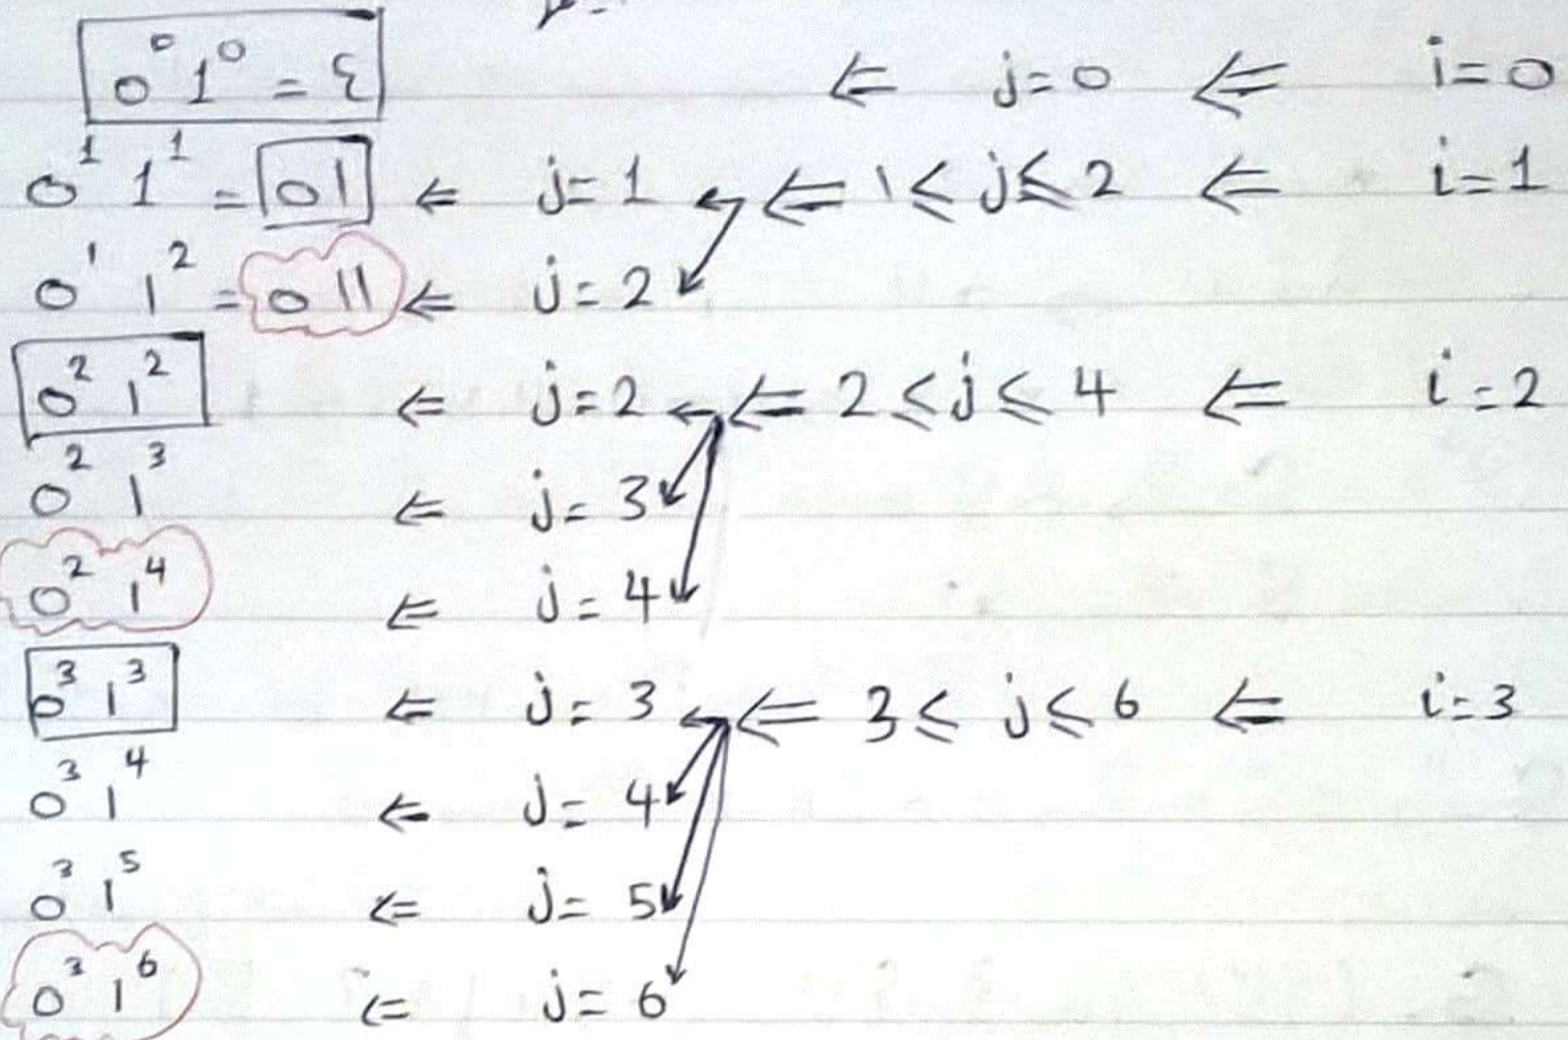 0⁰ 1⁰ = ε ⇐ j=0 ⇐ i=0
0¹ 1¹ = 01 ⇐ j=1 ⇐ 1 ≤ j ≤ 2 ⇐ i=1
0¹ 1² = 011 ⇐ j=2
0² 1² ⇐ j=2 ⇐ 2 ≤ j ≤ 4 ⇐ i=2
0² 1³ ⇐ j=3
0² 1⁴ ⇐ j=4
0³ 1³ ⇐ j=3 ⇐ 3 ≤ j ≤ 6 ⇐ i=3
0³ 1⁴ ⇐ j=4
0³ 1⁵ ⇐ j=5
0³ 1⁶ ⇐ j=6